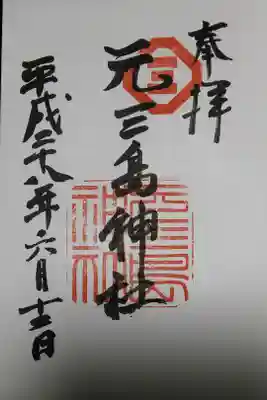 奉拝
元三島神社
平成二十八年六月十二日
元三島
神社